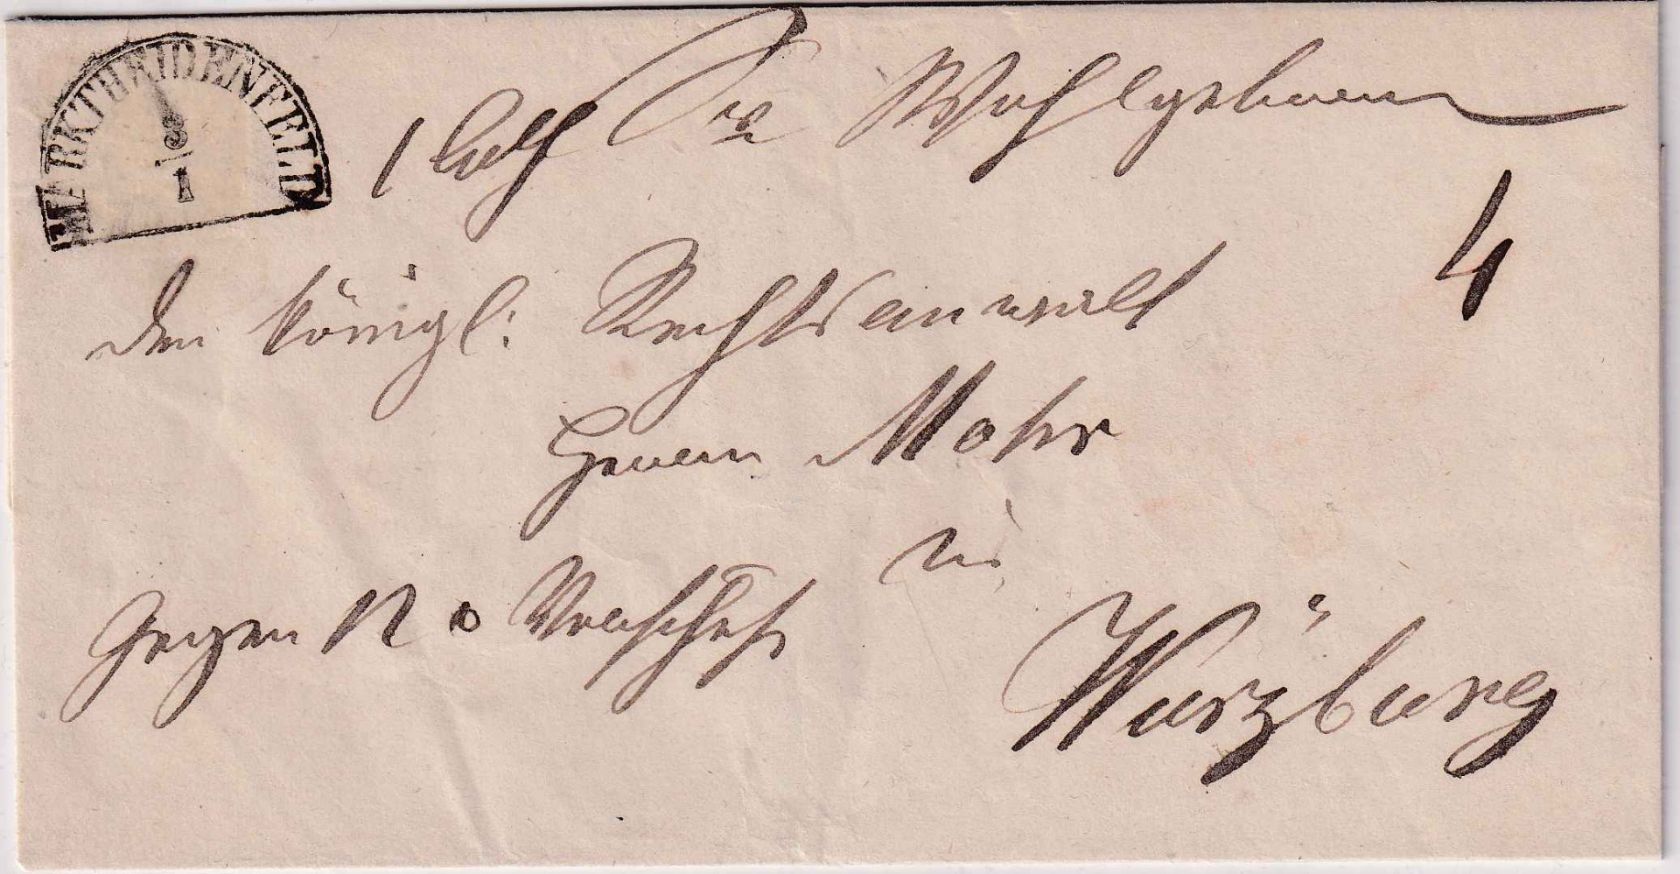 MARKTHEIDENFELD
8
1
1 Sr Wohlgeboren
4
den königl: Rechtsanwalt
Herrn Mohr
in
Gegen
Würzburg